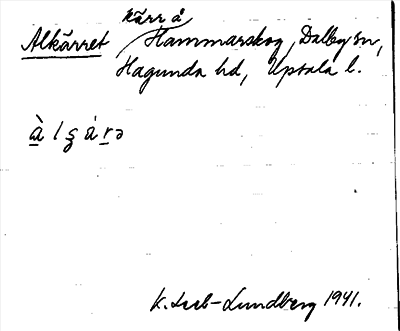 Alkärret Kärr å Hammarskog, Dalby sn,
Hagunda hd, Uppsala l.
K. Leeb-Lundberg 1941.